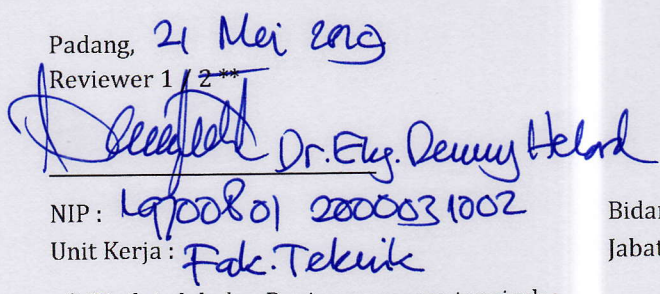 Padang, 21 Mei 2019
Reviewer 1 / 2 **
Dr. Eng. Denny Helard
NIP : 19700801 2000031002
Unit Kerja : Fak. Teknik
Bidan
Jabat